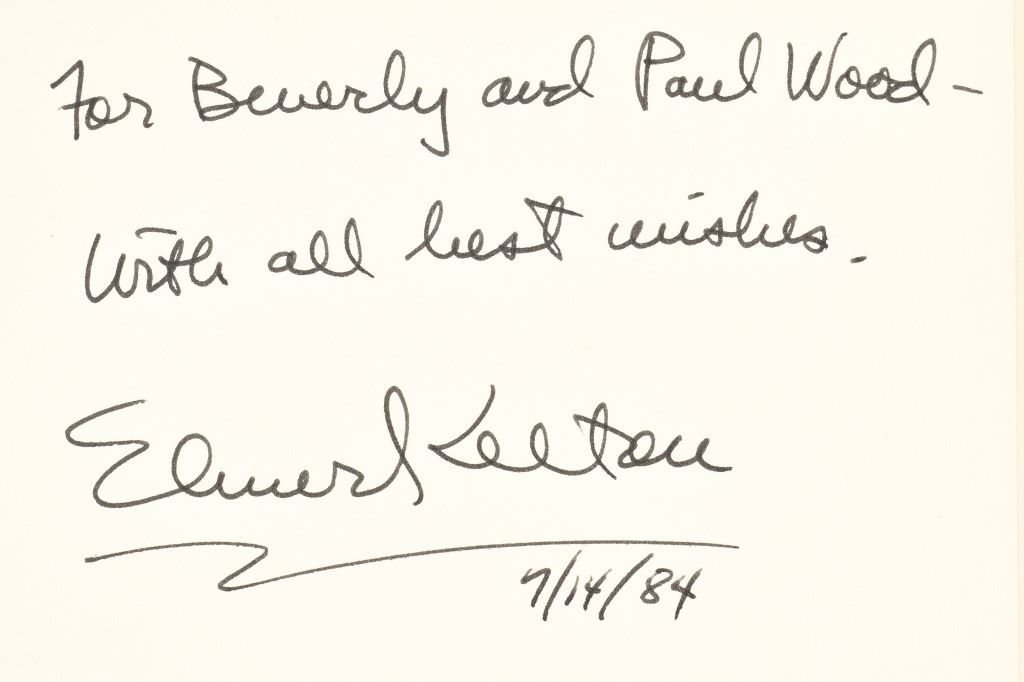 For Beverly and Paul Wood -
With all best wishes.
Elmer Kelton
7/14/84